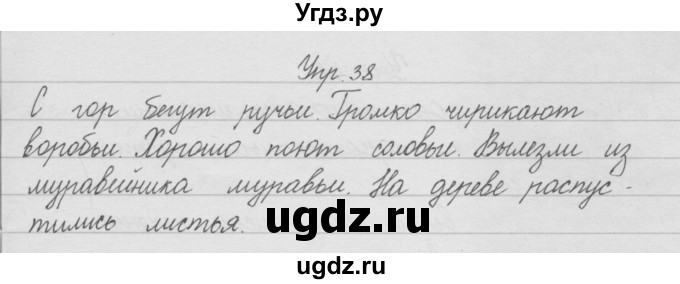 Угдз.ру
Упр. 38
С гор бегут ручьи. Громко чирикают
воробьи. Хорошо поют соловьи. Вылезли из
муравейника муравьи. На дереве распус-
тились листья.
ugdz.ru
ugdz.ru